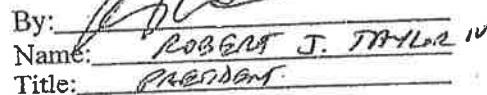 By:
Name: ROBERT J. TAYLOR IV
Title: PRESIDENT.